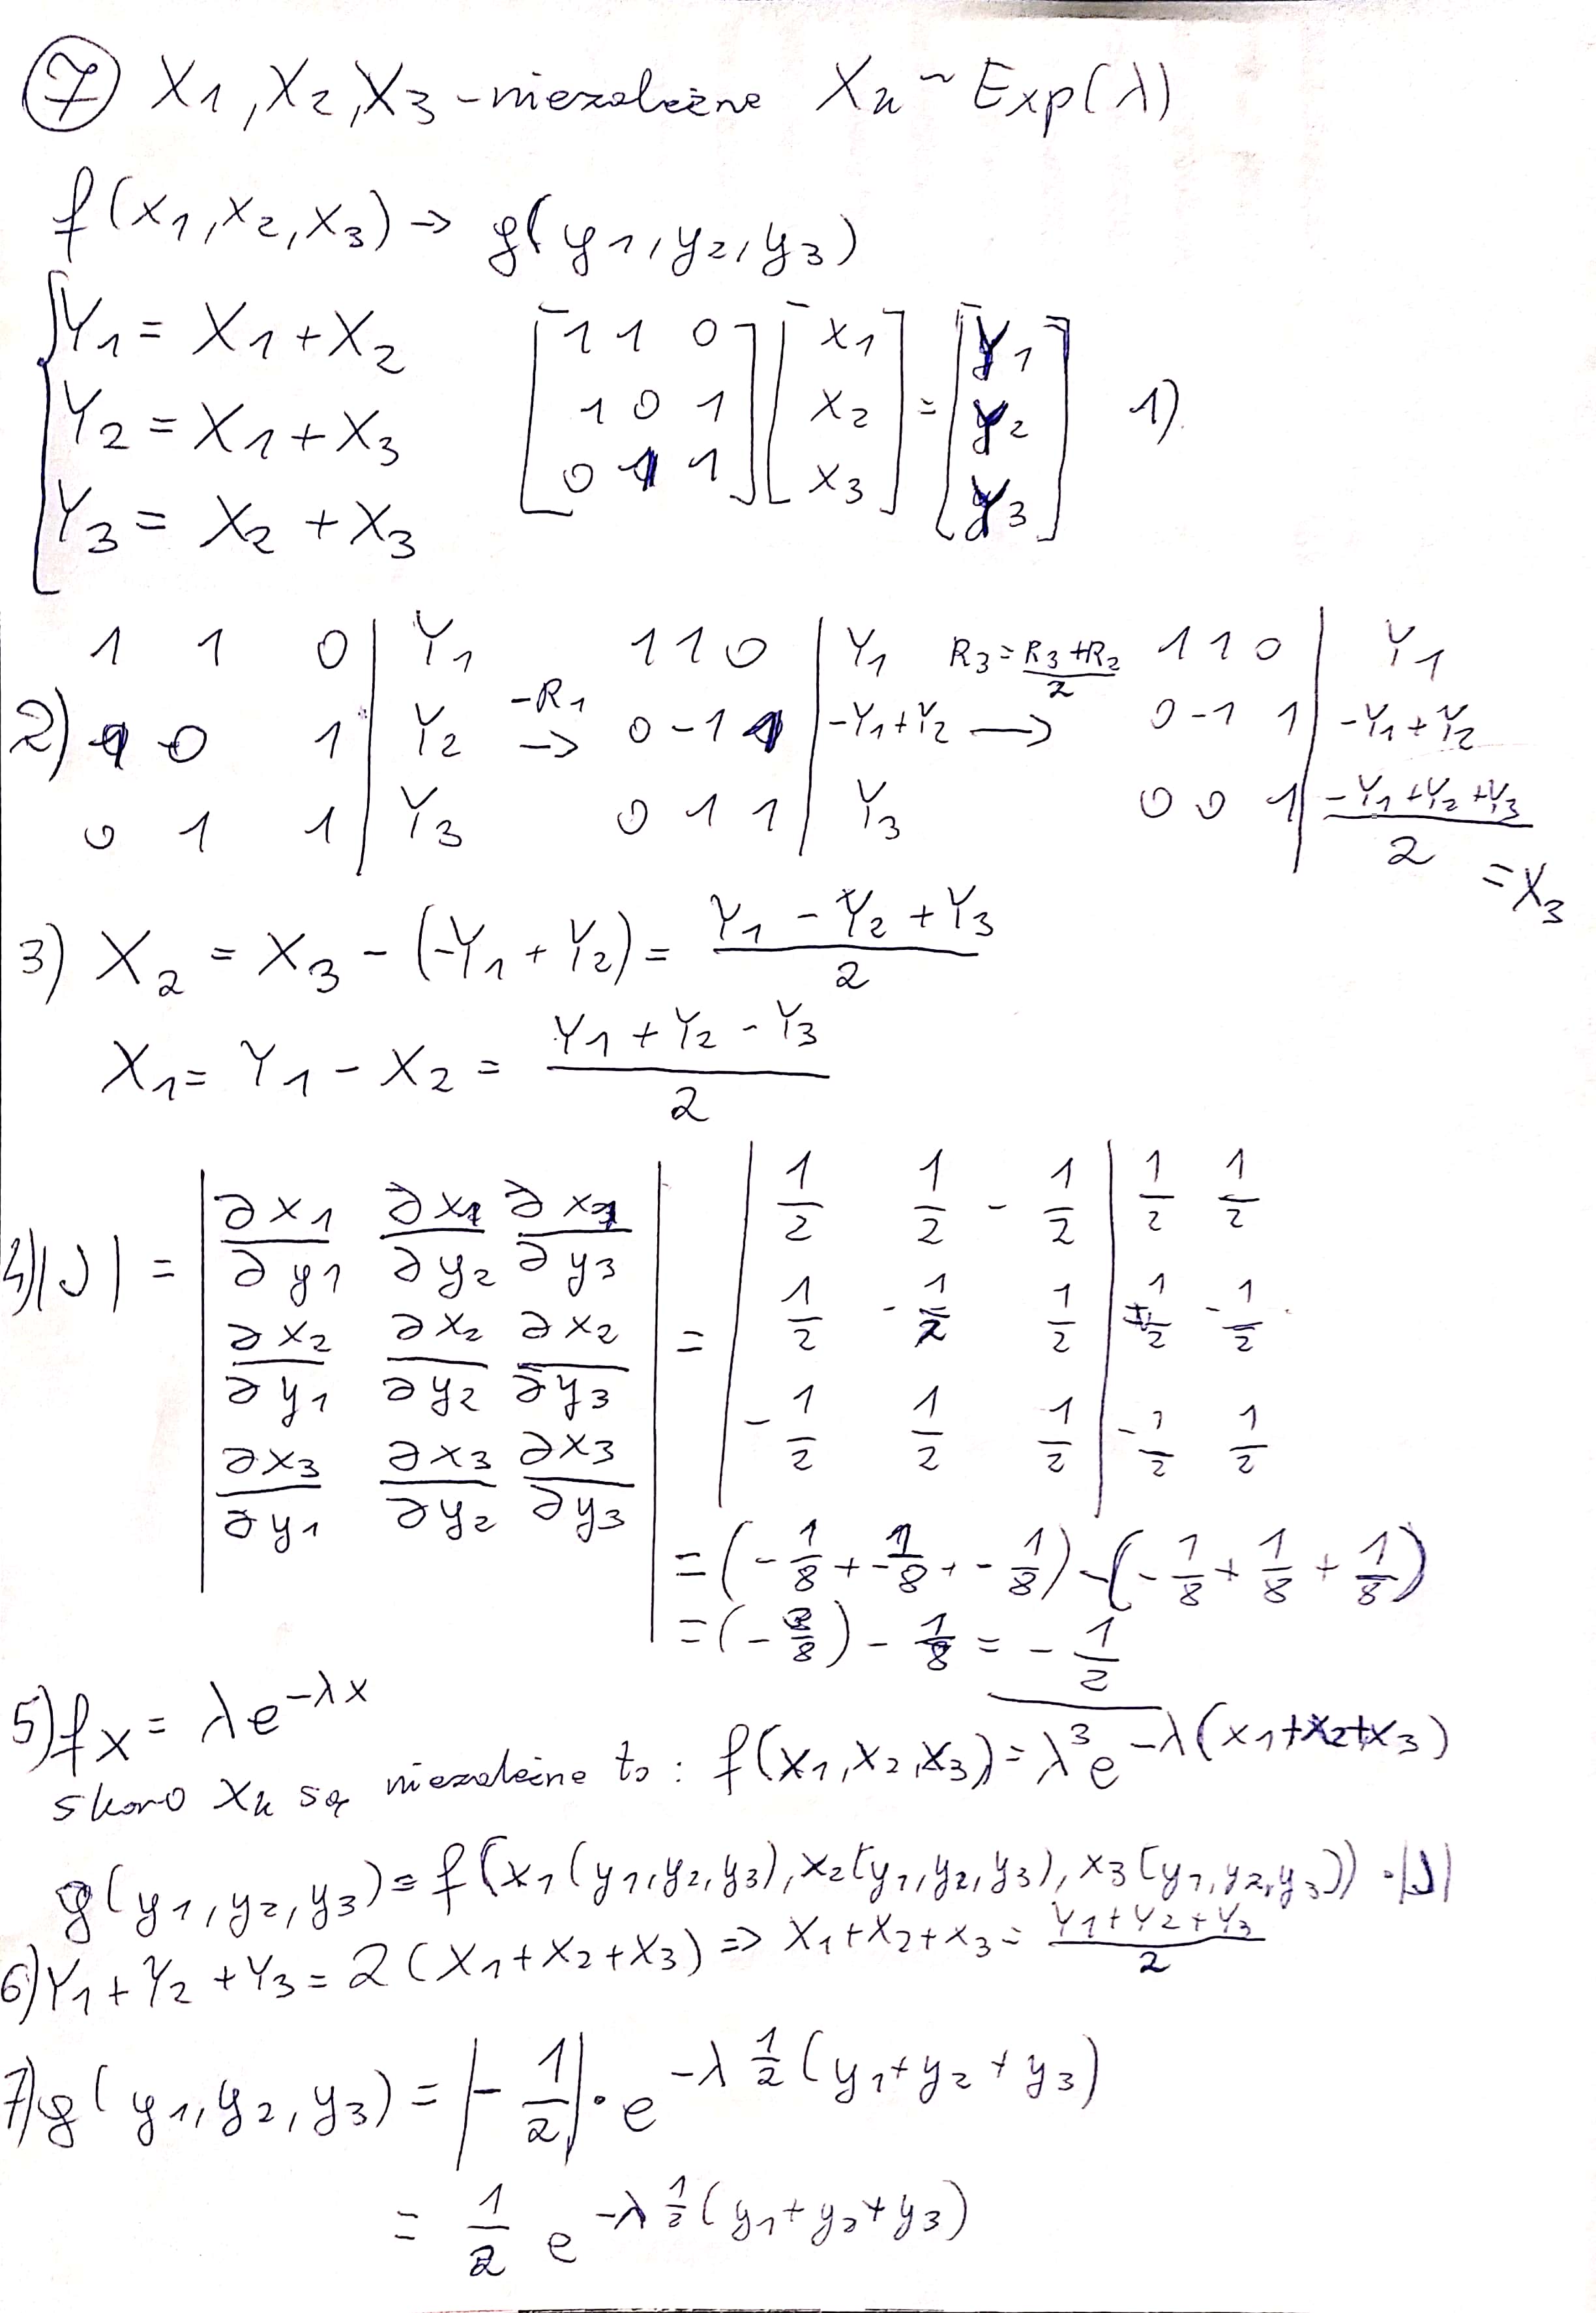 ⑦ X1, X2, X3 - niezależne Xk ~ Exp(λ)
f(x1, x2, x3) → g(y1, y2, y3)
{ Y1 = X1 + X2
Y2 = X1 + X3
Y3 = X2 + X3
[1 1 0; 1 0 1; 0 1 1] [x1; x2; x3] = [y1; y2; y3] 1)
2)
1 1 0 | Y1
1 0 1 | Y2
0 1 1 | Y3
-R1 →
1 1 0 | Y1
0 -1 1 | -Y1+Y2
0 1 1 | Y3
R3 = (R3+R2)/2 →
1 1 0 | Y1
0 -1 1 | -Y1+Y2
0 0 1 | (-Y1+Y2+Y3)/2 = X3
3) X2 = X3 - (-Y1 + Y2) = (Y1 - Y2 + Y3)/2
X1 = Y1 - X2 = (Y1 + Y2 - Y3)/2
4) |J| = | ∂x1/∂y1 ∂x1/∂y2 ∂x1/∂y3 |
| ∂x2/∂y1 ∂x2/∂y2 ∂x2/∂y3 |
| ∂x3/∂y1 ∂x3/∂y2 ∂x3/∂y3 |
= | 1/2 1/2 -1/2 | 1/2 1/2
| 1/2 -1/2 1/2 | 1/2 -1/2
| -1/2 1/2 1/2 | -1/2 1/2
= (-1/8 + -1/8 + -1/8) - (-1/8 + 1/8 + 1/8)
= (-3/8) - 1/8 = -1/2
5) fx = λe^(-λx)
skoro Xk są niezależne to: f(x1, x2, x3) = λ³e^(-λ(x1+x2+x3))
g(y1, y2, y3) = f(x1(y1, y2, y3), x2(y1, y2, y3), x3(y1, y2, y3)) · |J|
6) Y1 + Y2 + Y3 = 2(X1 + X2 + X3) => X1 + X2 + X3 = (Y1 + Y2 + Y3)/2
7) g(y1, y2, y3) = |-1/2| · e^(-λ 1/2 (y1 + y2 + y3))
= 1/2 e^(-λ 1/2 (y1 + y2 + y3))